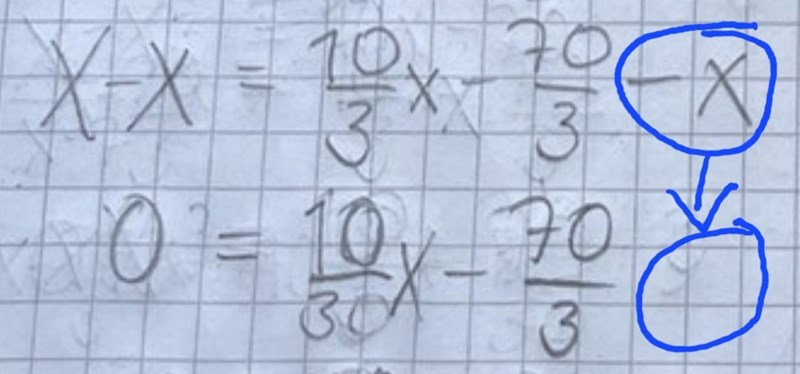 X-X = 10/3 x - 70/3 - X
0 = 10/30 x - 70/3